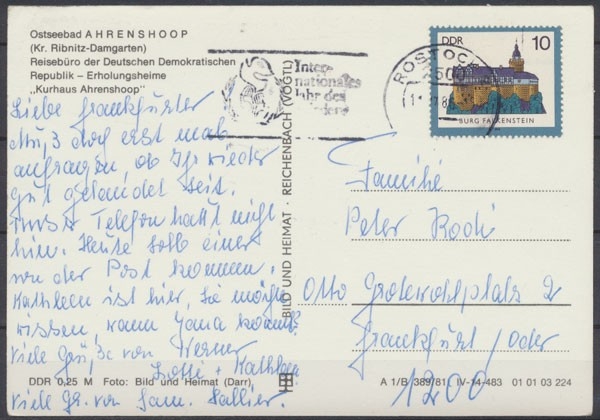 Ostseebad AHRENSHOOP
(Kr. Ribnitz-Damgarten)
Reisebüro der Deutschen Demokratischen
Republik – Erholungsheime
„Kurhaus Ahrenshoop"
Inter-
nationales
Jahr des
Friedens
ROSTOCK
2500
DDR 10
BURG FALKENSTEIN
Liebe Frankfurter
Muß doch erst mal
anfragen, ob Ihr wieder
gut gelandet seit.
Unser Telefon haut nicht
hin. Heute soll einer
von der Post kommen.
Kathleen ist hier, Sie möchte
wissen, wann Jana kommt?
Viele Grüße von Werner
Lotti + Kathleen
viele Gr. von Fam. Sallier.
BILD UND HEIMAT · REICHENBACH (VOGTL)
Familie
Peter Koch
Otto Grotewohlplatz 2
Frankfurt/Oder
1200
DDR 0,25 M Foto: Bild und Heimat (Darr)
A 1/B 389/81 IV-14-483 01 01 03 224